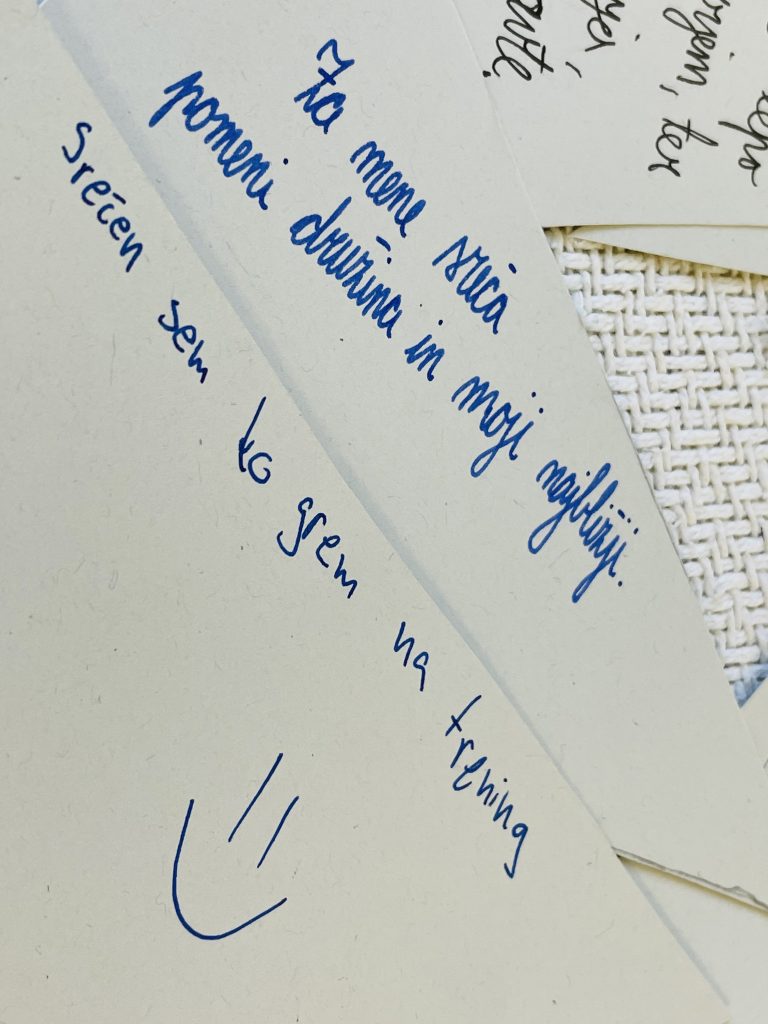 Za mene sreča
pomeni družina in moji najbližji.
Srečen sem ko grem na trening
, ter